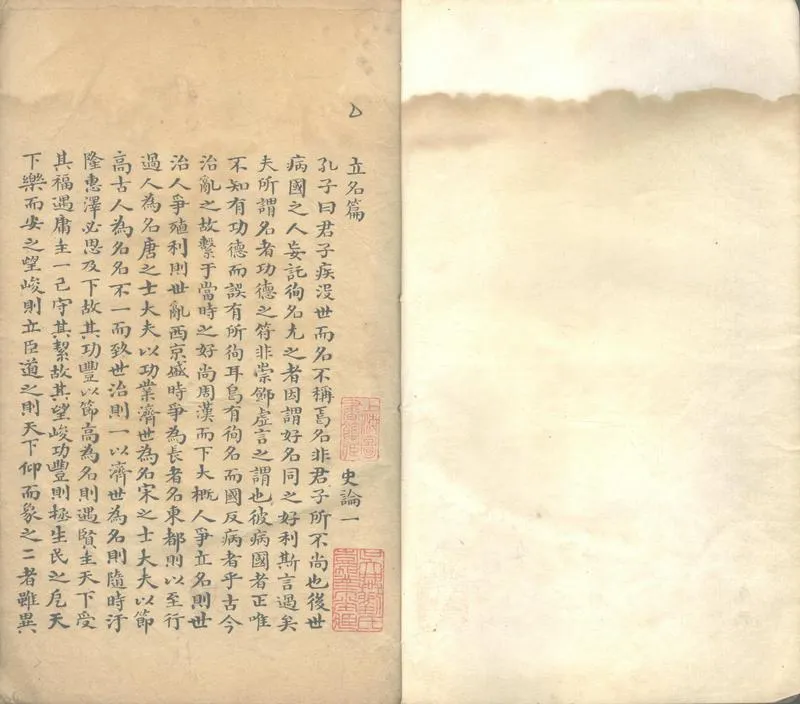 立名篇 史論一
孔子曰君子疾沒世而名不稱焉名非君子所不尚也後世
病國之人妄託徇名尤之者因謂好名同之好利斯言過矣
夫所謂名者功德之符非崇飾虛言之謂也彼病國者正唯
不知有功德而誤有所徇耳烏有徇名而國反病者乎古今
治亂之故繫于當時之好尚周漢而下大概人爭立名則世
治人爭殖利則世亂西京盛時爭為長者名東都則以至行
過人為名唐之士大夫以功業濟世為名宋之士大夫以節
高古人為名名不一而致世治則一以濟世為名則隨時汙
隆惠澤必思及下故其功豐以節高為名則遇賢主天下受
其福遇庸主一己守其絜故其望峻功豐則拯生民之戹天
下樂而安之望峻則立臣道之則天下仰而象之二者雖異
上海圖書館藏
吳興劉氏嘉業堂藏